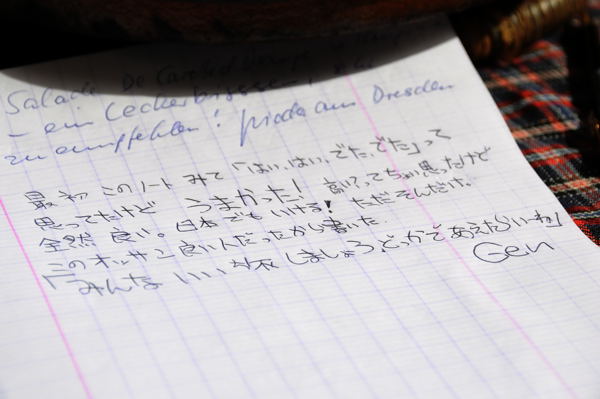 Salade De
- ein Leckerbissen! sehr
zu empfehlen! aus Dresden
最初 このノート みて 「はい、はい、でた、でた」って
思ってたけど うまかった! 高い?ってちょい思ったけど
全然 良い。日本でもいける! ただそんだけ。
このオッサン良い人だったから書いた。
「みんな いい 旅 しましょう、どっかであえたらいいね」
Gen